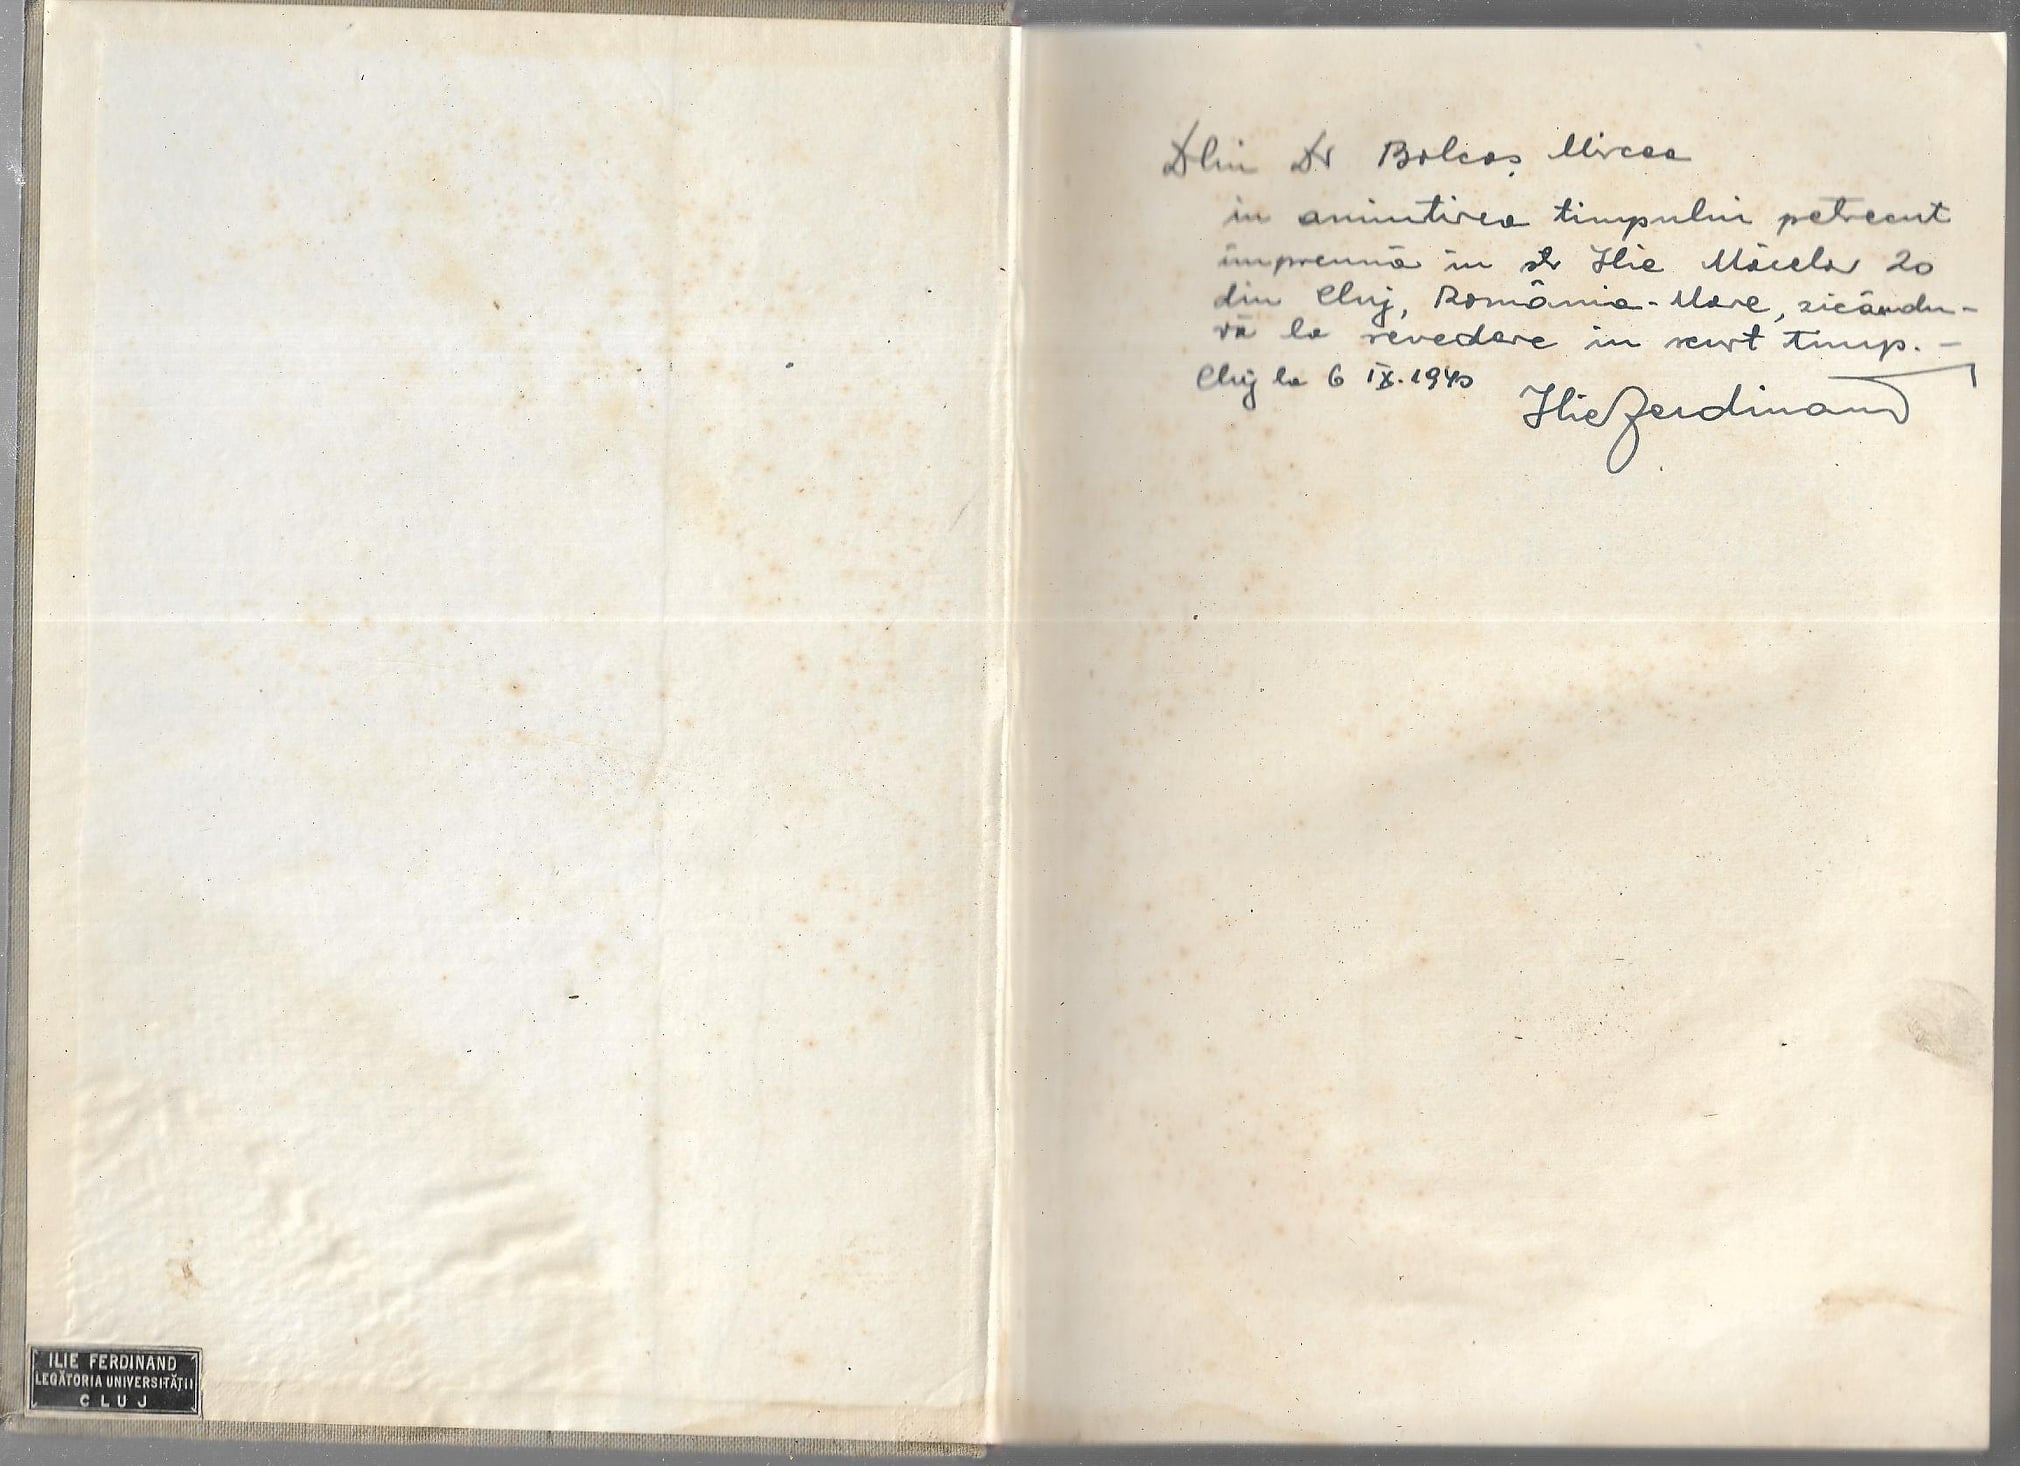 Dlui Dr Bolcaș Mircea
in amintirea timpului petrecut
împreună în str Ilie Măcelar 20
din Cluj, România-Mare, zicându-
vă la revedere in scurt timp. -
Cluj la 6 IX. 1940
Ilie Ferdinand
ILIE FERDINAND
LEGĂTORIA UNIVERSITĂȚII
CLUJ